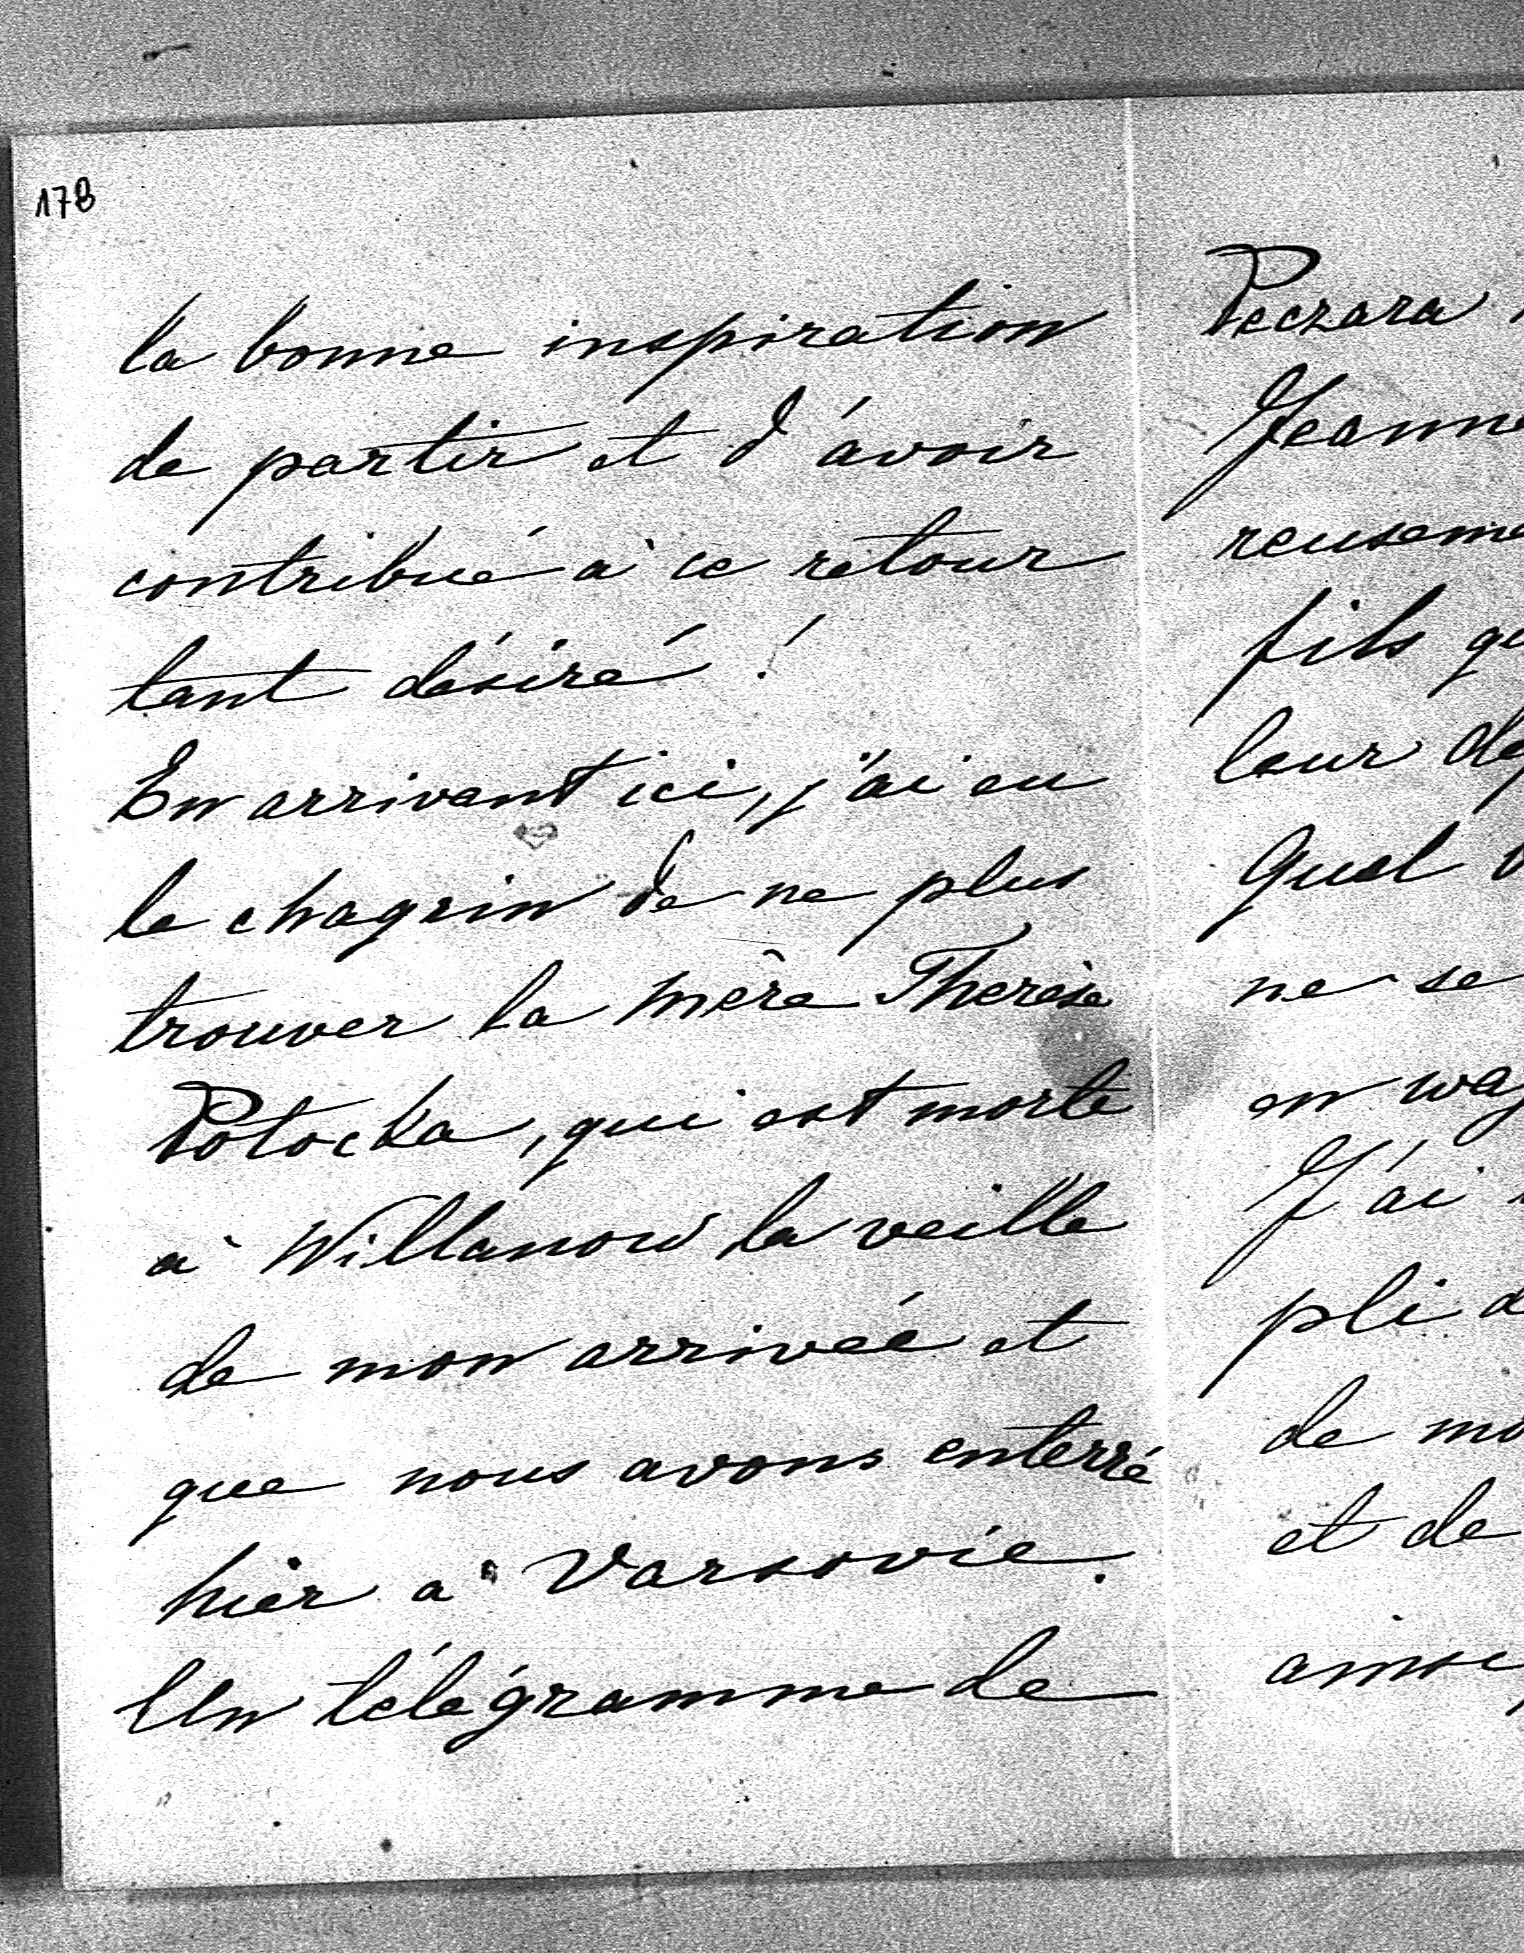 178
la bonne inspiration
de partir et d'avoir
contribué à ce retour
tant désiré !
En arrivant ici, j'ai eu
le chagrin de ne plus
trouver la mère Therèse
Potocka, qui est morte
à Willanow la veille
de mon arrivée et
que nous avons enterré
hier à Varsovie.
Un télégramme de
Peczara
Jeanne
reuseme
fils qu
leur dé
Quel
ne se
en wag
J'ai
pli d
de mo
et de
ainsi